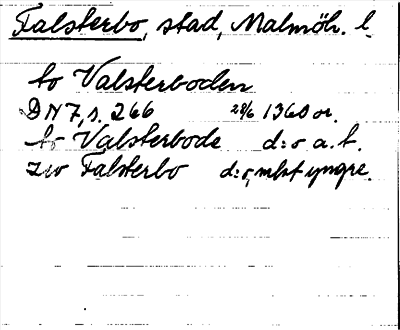 Falsterbo, stad, Malmöh. l.
to Valsterboden
DN 7, s. 266 28/6 1360 or.
to Valsterbode d:o a.t.
zw Falsterbo d:o, mkt yngre.